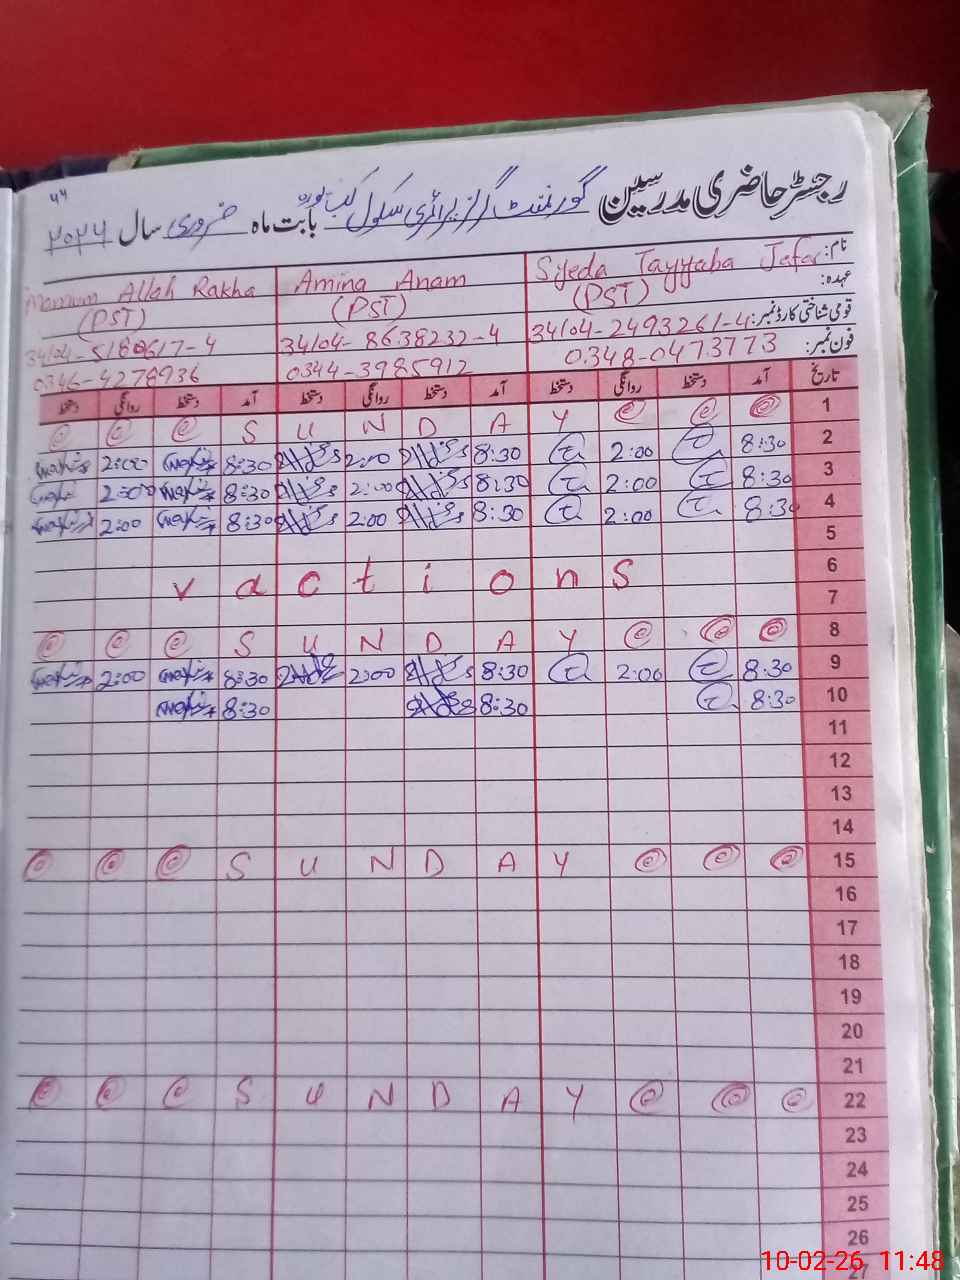 ۴۴
رجسٹر حاضری مدرسین گورنمنٹ گرلز پرائمری سکول بابت ماہ فروری سال ۲۰۲۶
نام: Syeda Tayyaba Jafar Amina Anam Mamum Allah Rakha
عہدہ: (PST) (PST) (PST)
قومی شناختی کارڈ نمبر: 34104-2493261-4 34104-8638232-4 34104-5180617-4
فون نمبر: 0348-0473773 0344-3985912 0346-4278936
تاریخ آمد دستخط روانگی دستخط آمد دستخط روانگی دستخط آمد دستخط روانگی دستخط
S U N D A Y 1
2:00 8:30 2:00 8:30 2:00 8:30 2
2:00 8:30 2:00 8:30 2:00 8:30 3
2:00 8:30 2:00 8:30 2:00 8:30 4
5
v a c t i o n s 6
7
S U N D A Y 8
2:00 8:30 2:00 8:30 2:00 8:30 9
8:30 8:30 8:30 10
11
12
13
14
S U N D A Y 15
16
17
18
19
20
21
S U N D A Y 22
23
24
25
26
27
10-02-26 11:48